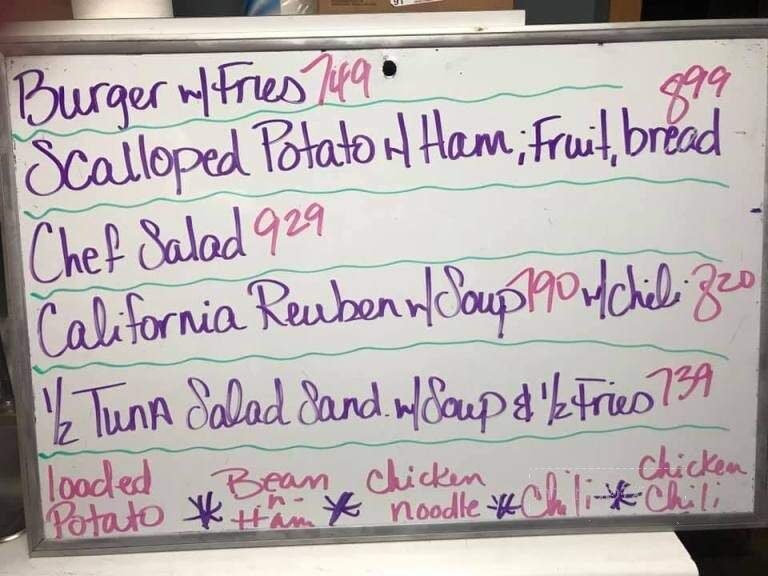 Burger w/Fries 749
899
Scalloped Potato w/ Ham; Fruit, bread
Chef Salad 929
California Reuben w/Soup 790 w/chili 820
1/2 Tuna Salad Sand. w/Soup & 1/2 Fries 739
loaded Potato * Bean -n- Ham * Chicken noodle * Chili * Chicken Chili